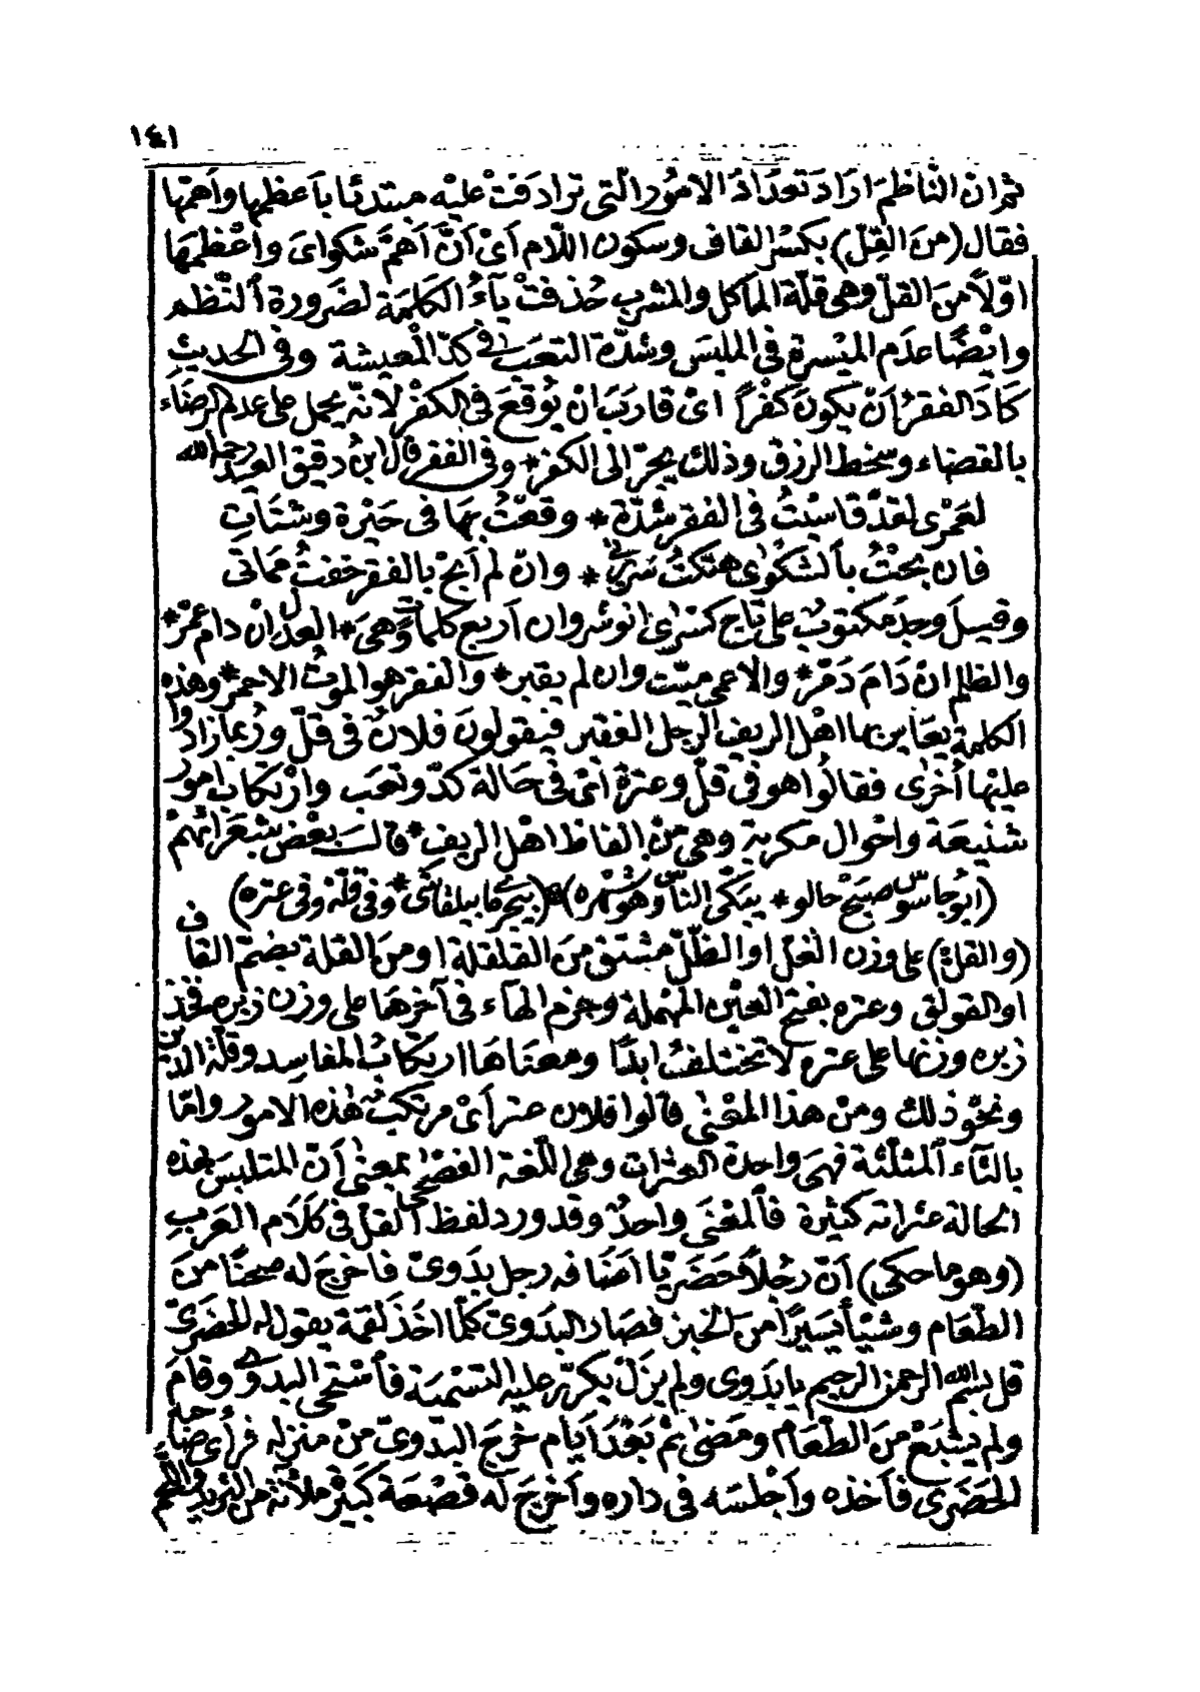 ١٤١
ثم ان الناظم اراد تعداد الامور التى ترادفت عليه مبتدئا بأعظمها وأهمها
فقال (من القل) بكسر القاف وسكون اللام أى أنّ أهمّ شكواى واعظمها
اولاً من القلّ وهى قلّة المأكل والمشرب حُذفت تآءُ الكلمة لضرورة النظم
وايضًا عدم الميسرة فى الملبس وشدّة التعب فى كدّ المعيشة وفى الحديث
كاد الفقر أن يكون كفرًا اى قارب ان يوقع فى الكفر لانّه يحمل على عدم الرضاء
بالقضاء وسخط الرزق وذلك يجرّ الى الكفر * وفى الفقر قال ابن دقيق العيد رحمه الله
لعمرى لقد قاسيتُ فى الفقر شدّة * وقعتُ بها فى حيرة وشتات
فان بحْتُ بالشكوى هتكتُ سريرتى * وان لم أبحْ بالفقر خفتُ مماتى
وقيل وجد مكتوبٌ على تاج كسرى انوشروان أربع كلمات وهى * العدل ان دام عمّر *
والظلم ان دام دمّر * والاعمى ميّت وان لم يقبر * والفقر هو الموت الاحمر * وهذه
الكلمة يعاير بها اهل الريف الرجل الفقير فيقولون فلانٌ فى قلّ وربما زادوا
عليها أخرى فقالوا هو فى قلّ وعترة أى فى حالة كدّ وتعب وارتكاب امور
شنيعة واحوال مكربة وهى من الفاظ اهل الريف * قالت بعض شعرائهم
(ابو جاموس صبح حالو * يبكّى الناس وهو شهره) * (بيجرى ما بيلقاشى * وفى قلّة وفى عتره)
(والقلّ) على وزن الغلّ او الظلّ مشتق من القلقلة او من القلة بضمّ القاف
او القولق وعتره بفتح العين المهملة وجزم الهآء فى آخرها على وزن زبره فخذ
زبره وزنها على عتره لا تختلف ابدًا ومعناها ارتكاب المفاسد وقلّة الدين
ونحو ذلك ومن هذا المعنى قالوا فلان عتر أى مرتكب هذه الامور وامّا
بالثآء المثلّثة فهى واحدة العثرات وهى اللّغة الفصحى بمعنى أنّ المتلبس بهذه
الحالة عثراته كثيرة فالمعنى واحدٌ وقد ورد لفظ القلّ فى كلام العرب
(وهو ما حكى) أنّ رجُلاً حضريًّا اضافه رجل بدوىّ فأخرج له صحنًا من
الطّعام وشيئًا يسيرًا من الخبز فصار البدوىّ كلّما اخذ لقمة يقول له الحضرىّ
قل بسم الله الرحمن الرحيم يا بدوى ولم يزل يكرّر عليه التسمية فأستحى البدوى وقام
ولم يشبع من الطّعام ومضى ثم بعد أيام خرج البدوىّ من منزله فرأى صاحبه
الحضرى فأخذه وأجلسه فى داره وأخرج له قصعة كبيرة ملآنة من الثريد واللحم